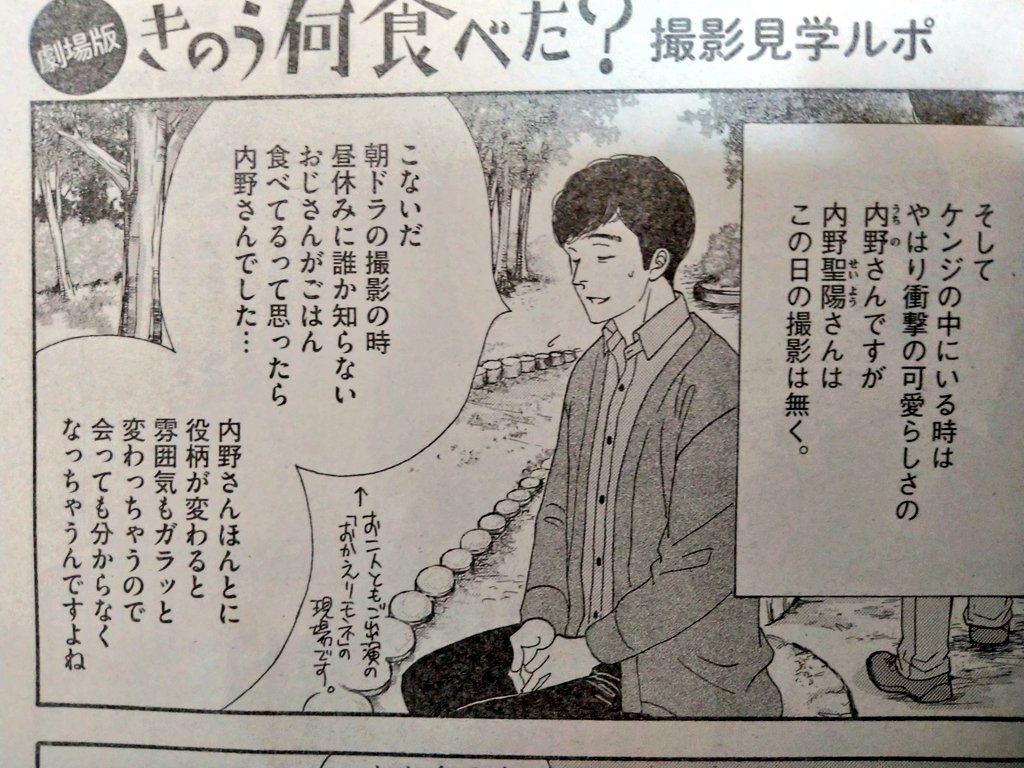 劇場版
きのう何食べた?
撮影見学ルポ
そして
ケンジの中にいる時は
やはり衝撃の可愛らしさの
内野さんですが
うちの
内野聖陽さんは
せいよう
この日の撮影は無く。
こないだ
朝ドラの撮影の時
昼休みに誰か知らない
おじさんがごはん
食べてるって思ったら
内野さんでした…
↑お二人ともご出演の
「おかえりモネ」の
現場です。
内野さんほんとに
役柄が変わると
雰囲気もガラッと
変わっちゃうので
会っても分からなく
なっちゃうんですよね